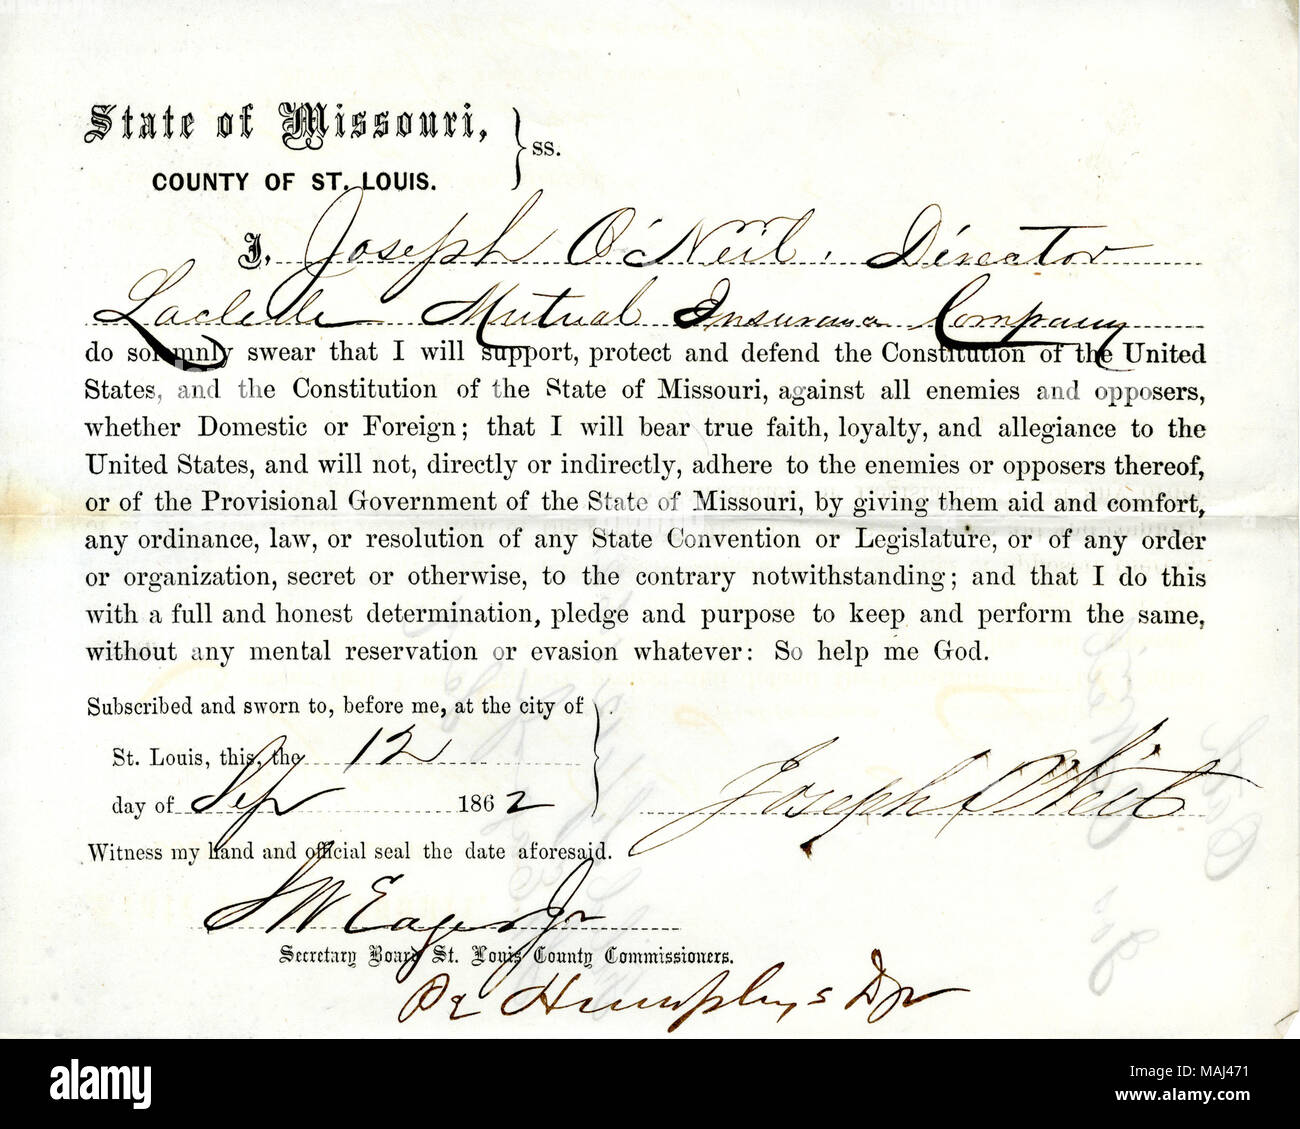 State of Missouri, } ss.
COUNTY OF ST. LOUIS.
I, Joseph O'Neil, Director
Laclede Mutual Insurance Company
do solemnly swear that I will support, protect and defend the Constitution of the United
States, and the Constitution of the State of Missouri, against all enemies and opposers,
whether Domestic or Foreign; that I will bear true faith, loyalty, and allegiance to the
United States, and will not, directly or indirectly, adhere to the enemies or opposers thereof,
or of the Provisional Government of the State of Missouri, by giving them aid and comfort,
any ordinance, law, or resolution of any State Convention or Legislature, or of any order
or organization, secret or otherwise, to the contrary notwithstanding; and that I do this
with a full and honest determination, pledge and purpose to keep and perform the same,
without any mental reservation or evasion whatever: So help me God.
Subscribed and sworn to, before me, at the city of
St. Louis, this, the 12
day of Sep 1862
Joseph O'Neil
Witness my hand and official seal the date aforesaid.
S W Eager Jr
Secretary Board St. Louis County Commissioners.
Humphrys Dp
alamy
Image ID: MAJ471
www.alamy.com